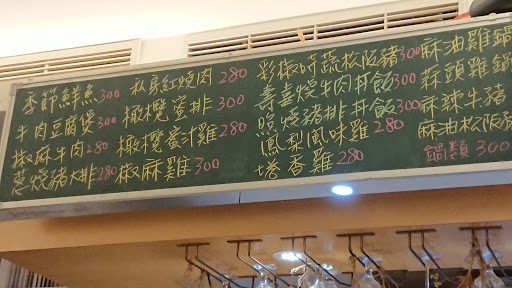 季節鮮魚300
牛肉豆腐煲300
椒麻牛肉280
蔥燒豬排280
私房紅燒肉 280
橄欖蜜排 300
橄欖蜜汁雞280
椒麻雞300
彩椒時蔬松阪豬300
壽喜燒牛肉丼飯300
照燒豬排丼飯300
鳳梨風味雞280
塔香雞280
麻油雞鍋
蒜頭雞鍋
麻辣牛豬
麻油松阪
鍋類300